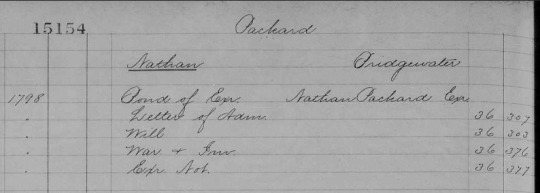 15154 Packard
Nathan Bridgewater
1798 Bond of Exr. Nathan Packard Exr.
" Letter of Adm. 36 307
" Will 36 303
" War + Inv. 36 376
" Exr. Not. 36 377